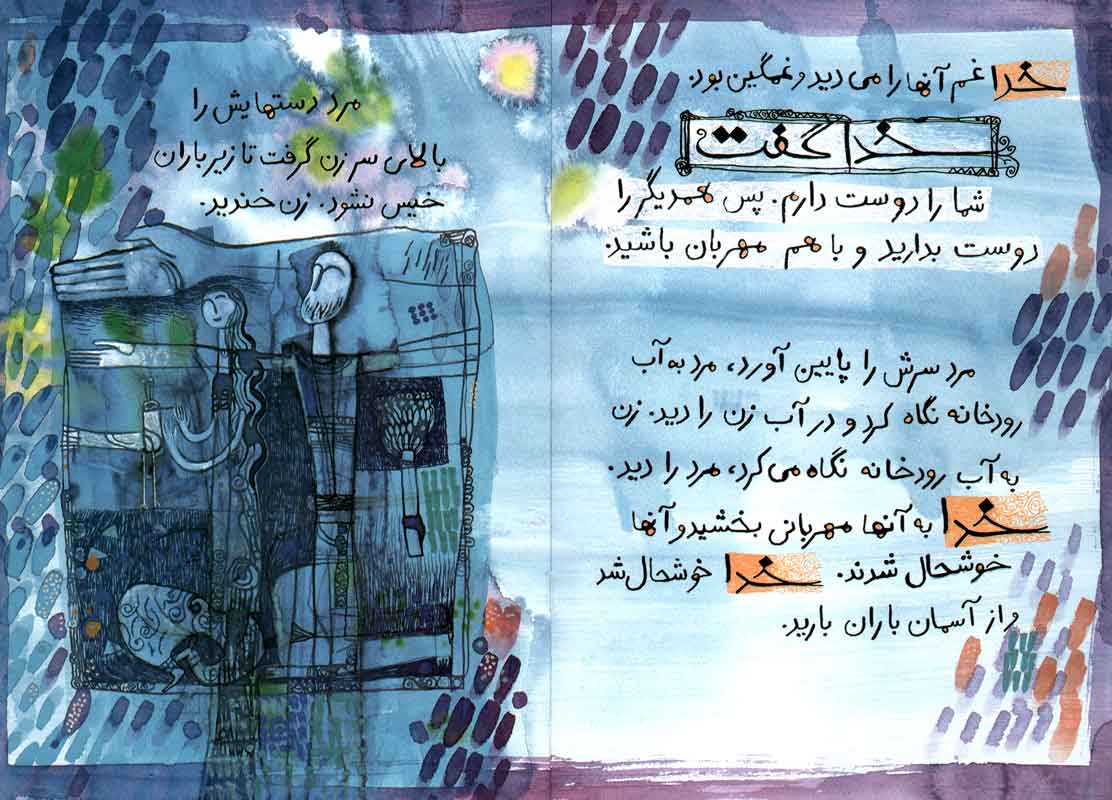 خدا غم آنها را می دید و غمگین بود.
خدا گفت
شما را دوست دارم. پس همدیگر را
دوست بدارید و با هم مهربان باشید.
مرد سرش را پایین آورد، مرد به آب
رودخانه نگاه کرد و در آب زن را دید. زن
به آب رودخانه نگاه می کرد، مرد را دید.
خدا به آنها مهربانی بخشید و آنها
خوشحال شدند. خدا خوشحال شد
و از آسمان باران بارید.
مرد دستهایش را
بالای سر زن گرفت تا زیر باران
خیس نشود. زن خندید.